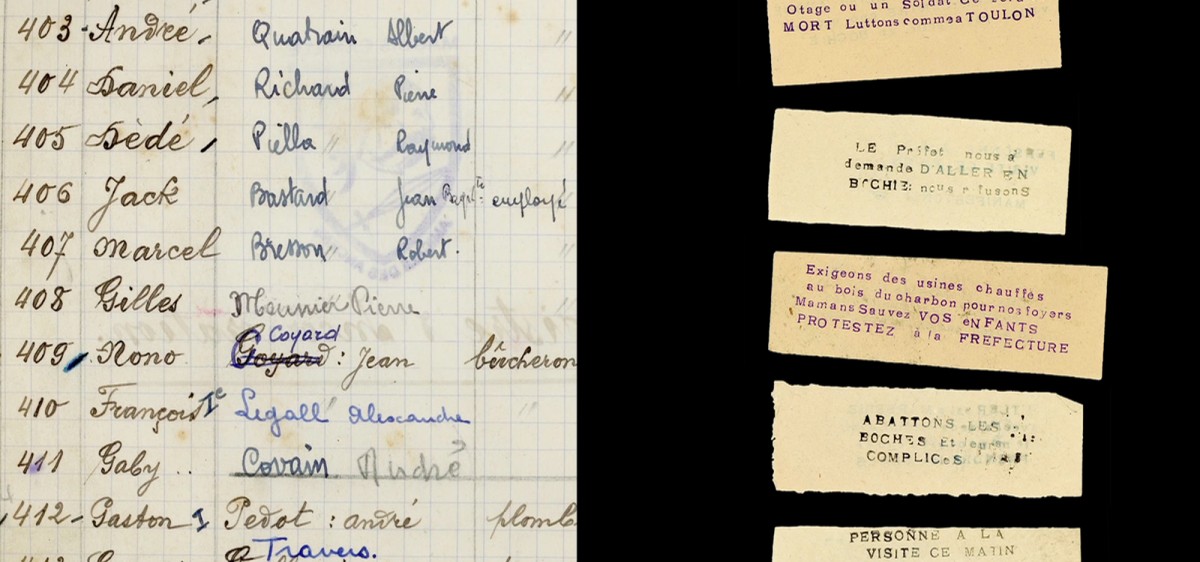 403 - André, Quatrain Albert "
404 Daniel, Richard Pierre "
405 Dédé, Piella " Raymond "
406 Jack Bastard Jean Bapte employé
407 Marcel Bresson " Robert. "
408 Gilles Meunier Pierre
Coyard
409 Nono Goyard : Jean bûcheron
410 François Ie Legall Alexandre "
411 Gaby .. Covain André
412 - Gaston I Pedot : andré plomb
Travers.
Otage ou un Soldat
MORT Luttons comme a TOULON
LE Préfet nous a
demande D'ALLER EN
BOCHIE: nous refusons
Exigeons des usines chauffés
au bois du charbon pour nos foyers
Mamans Sauvez VOS enFANTS
PROTESTEZ à la PREFECTURE
ABATTONS LES
BOCHES Et leurs
COMPLICES
PERSONNE A LA
VISITE CE MATIN